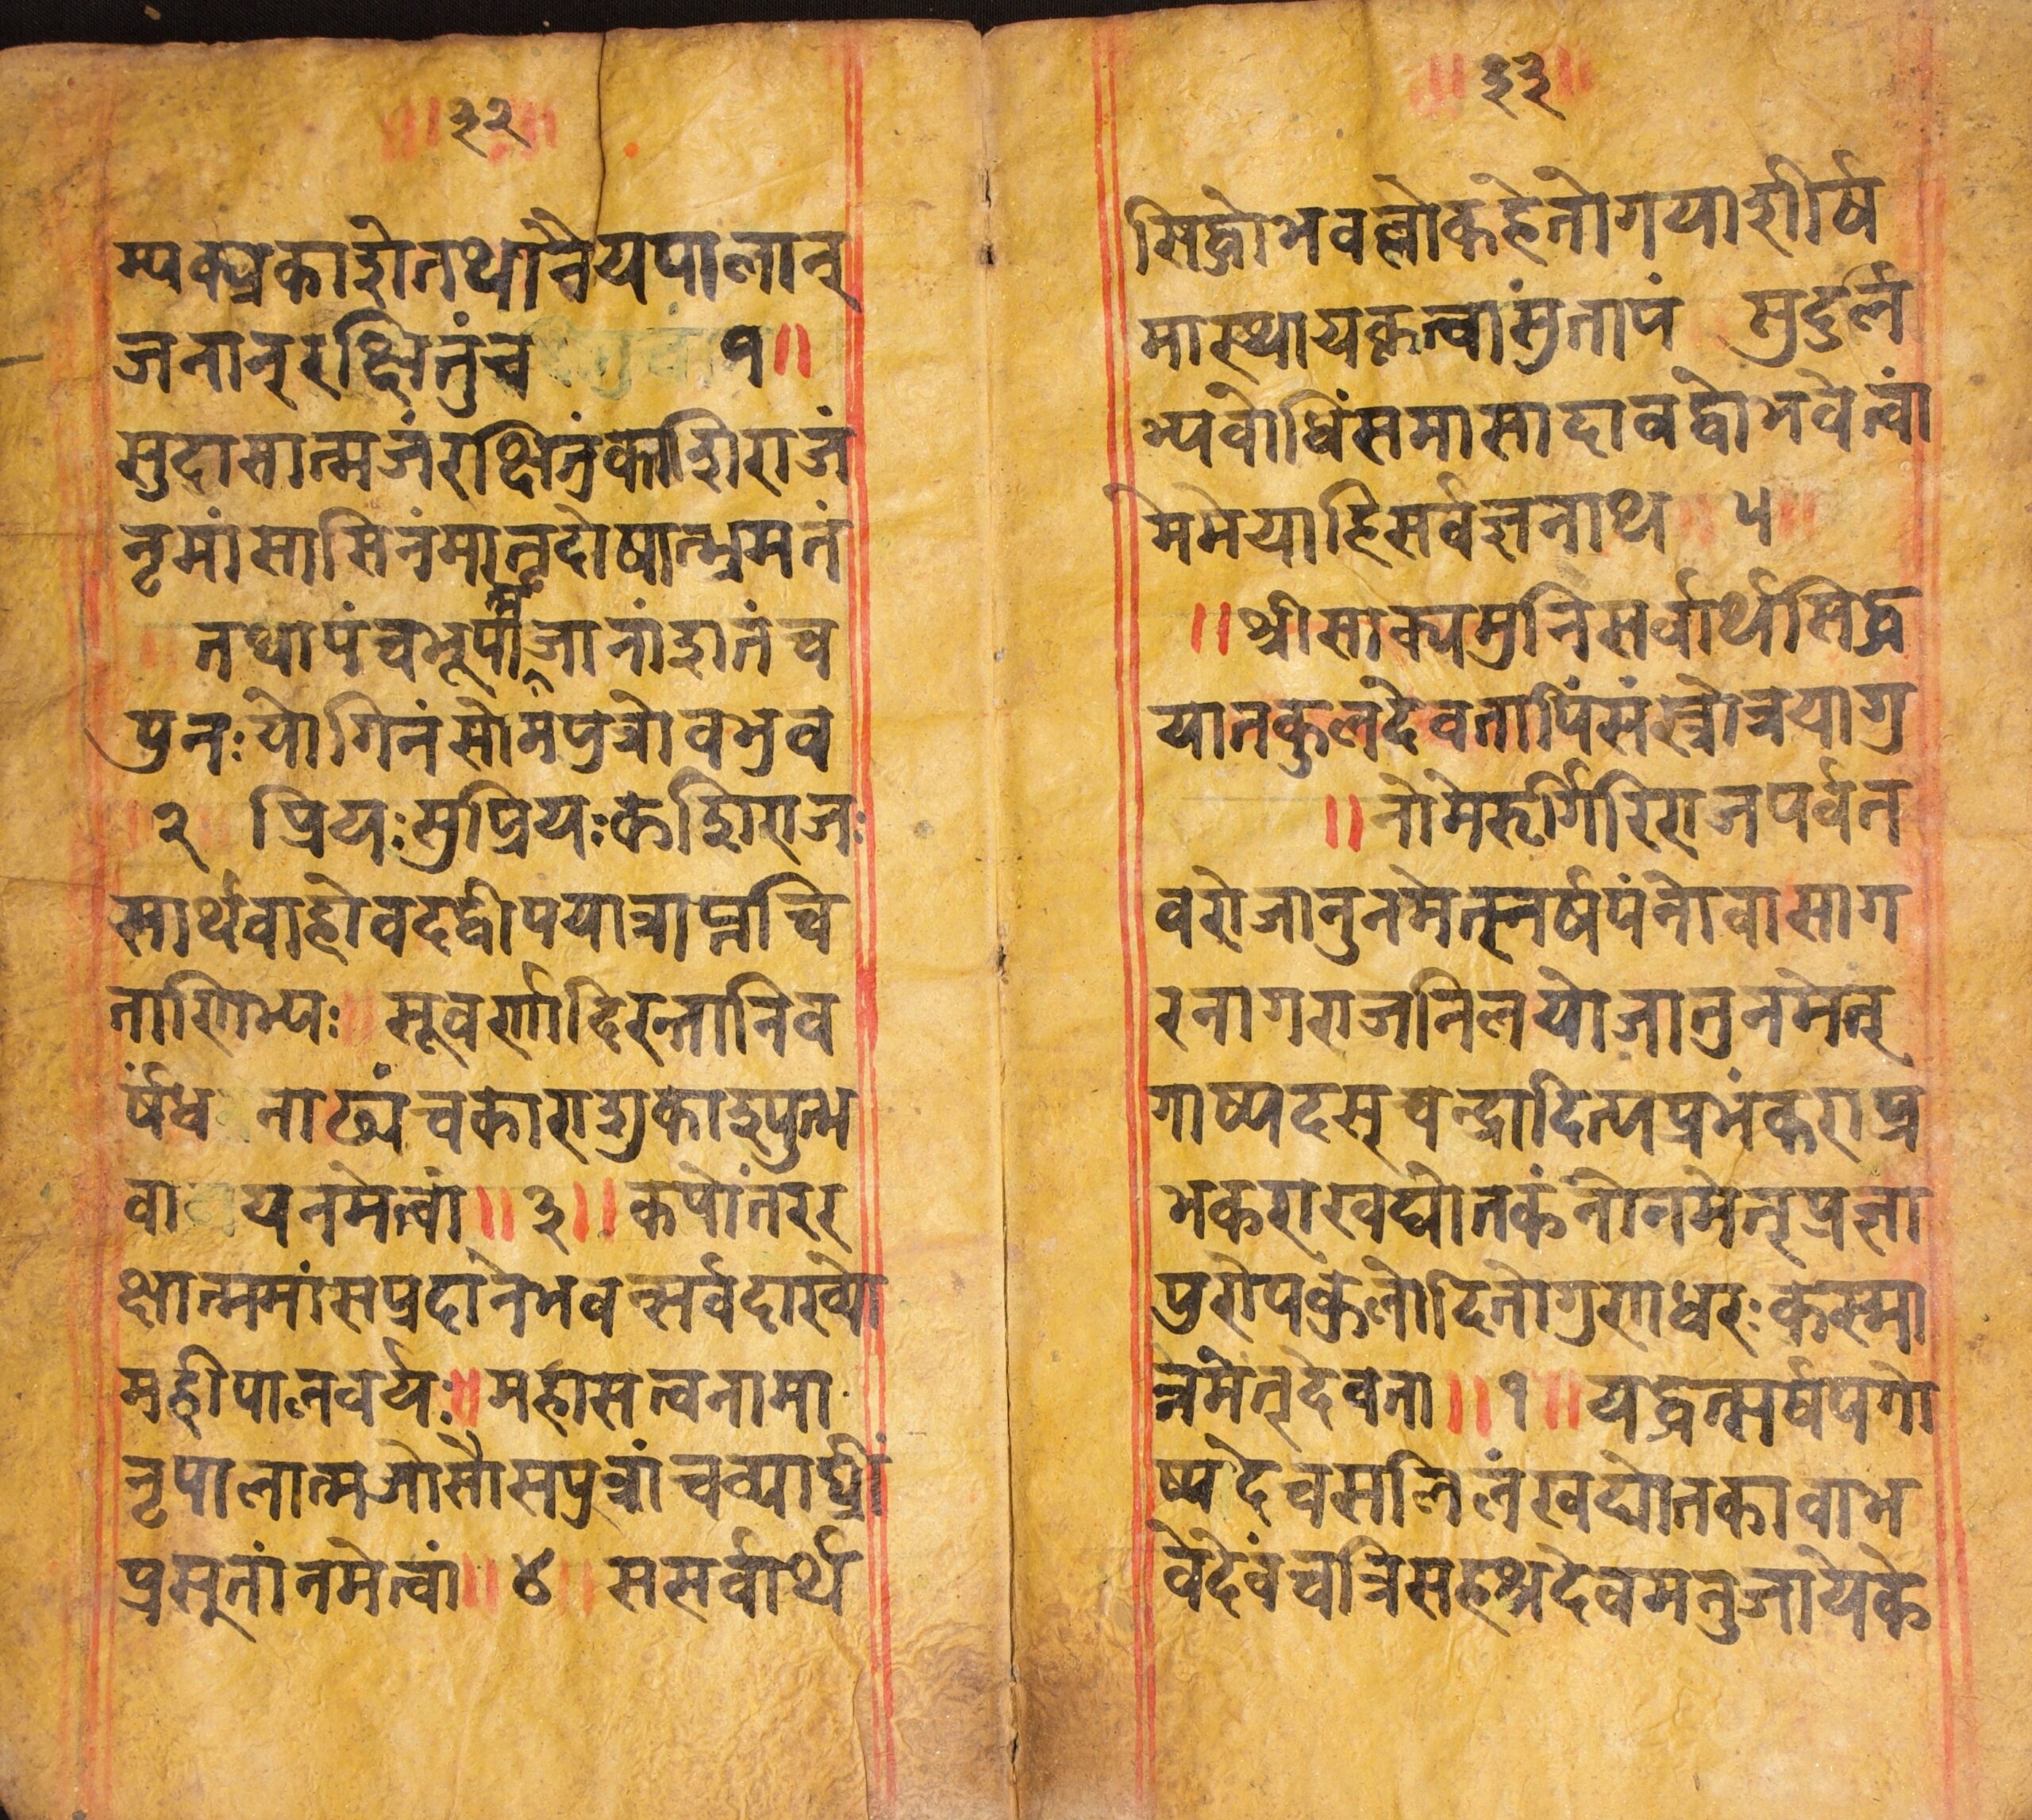 ३२
म्पकञ्चकाशेतथानैयपालान्
जनान्रक्षितुंच १॥
सुदासात्मजंरक्षितंकाशिराजं
नृमांसासिनंमातृदोषान्भ्रमतं
तथापंचभूपाजानांशतंच
पुनःयोगिनंसोमंपुत्रोवभुव
२ प्रियःसुप्रियःकेशिराजः
सार्थवाहोवदद्वीपयात्राप्नचि
तारिाभ्यः॥ सूवर्णादिरत्नानिव
र्षंध नाढ्यंचकाराशुकाश्पुत्भ
वा यनमेत्वां॥३॥कपोतंरर
क्षात्ममांसप्रदानेभवत्सर्वदाख्यो
महीपालवर्यः॥महासत्वनामा
नृपालात्मजोसौसपुत्रांचव्याघ्रीं
प्रसुतांनमेत्वां॥४॥ ससर्वार्थ
३३
सिद्धोभवल्लोकहेतोगयाशीर्ष
मास्थायकृत्वांसुतापं सुदुर्ल
भ्यवोधिंसमासाद्दावद्वोभवेत्वां
मेमेयाहिसर्वज्ञनाथ ५
॥श्रीसाक्यमुनिसर्वार्थसिद्ध
यानकुलदेवतापिंसंस्त्रोत्रयागु
॥नोमेरूर्गिरिराजपर्वत
वरोजानुनमेत्स्नर्षपंनोवासाग
रनागराजनिलयोजानुनमेत्
गाष्पदस्चन्द्रादित्यप्रभंकराप्र
भकराखद्योतकंनोनमेत्प्रज्ञा
पुरोपक्रेलोदितोगुणधरःकस्मा
न्नमेत्देवता॥१॥यद्वत्सर्षपगो
ष्पदेचसलिलंखद्योतकावाभ
वेदेवंचत्रिसहश्रदेवमनुजायेके